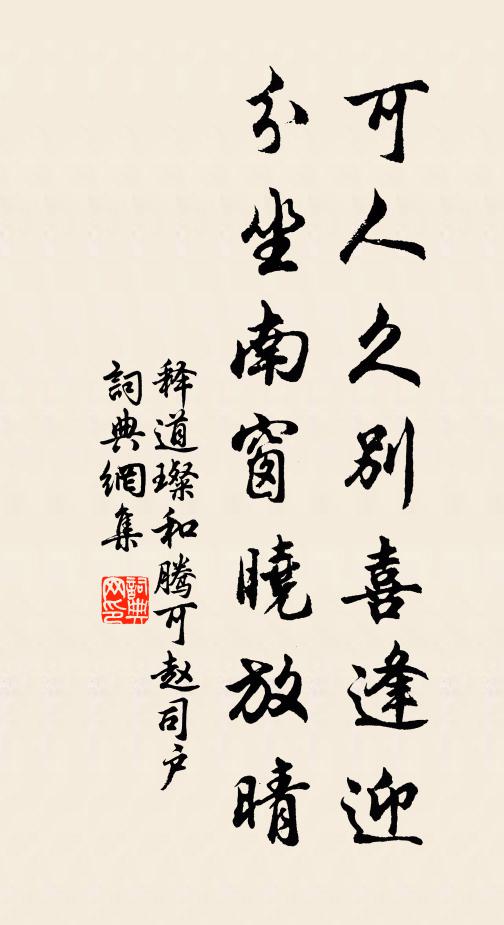 可人久別喜逢迎
分坐南窗曉放晴
释道璨和腾可赵司户
詞典網集